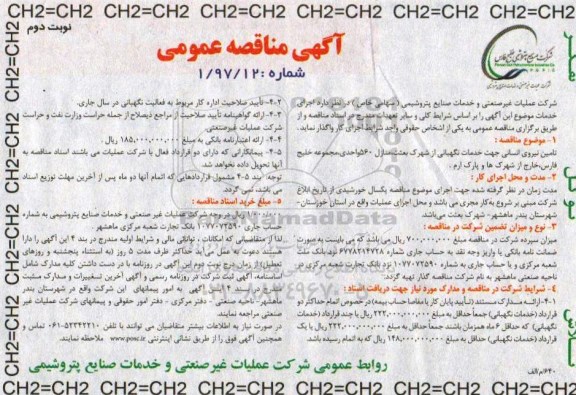 CH2=CH2 CH2=CH2 CH2=CH2 CH2=CH2 CH2=CH2 CH2=CH2
نوبت دوم
آگهی مناقصه عمومی
شماره : ۱/۹۷/۱۲
شرکت عملیات غیرصنعتی و خدمات صنایع پتروشیمی ( سهامی خاص ) در نظر دارد اجرای
خدمات موضوع این آگهی را بر اساس شرایط کلی و سایر تعهدات مندرج در اسناد مناقصه و از
طریق برگزاری مناقصه عمومی به یکی از اشخاص حقوقی واجد شرایط اجرای کار واگذار نماید.
۱- موضوع مناقصه :
تامین نیروی انسانی جهت خدمات نگهبانی از شهرک بعثت، منازل ۵۶۰واحدی،مجموعه خلیج
فارس،خارج از شهرک ها و پارک ارم .
۲- مدت و محل اجرای کار :
مدت زمان در نظر گرفته شده جهت اجرای موضوع مناقصه یکسال خورشیدی از تاریخ ابلاغ
شرکت مبنی بر شروع به کار مجری می باشد و محل اجرای عملیات واقع در استان خوزستان-
شهرستان بندر ماهشهر- شهرک بعثت می‌باشد.
۳- نوع و میزان تضمین شرکت در مناقصه :
میزان سپرده شرکت در مناقصه مبلغ ۷۰۰,۰۰۰,۰۰۰ ریال می باشد که می بایست به صورت
ضمانت نامه بانکی یا واریز وجه نقد به حساب جاری شماره ۶۷۷۸۲۱۴۷۲۸ نزد بانک ملت
شعبه مرکزی و یا حساب جاری به شماره ۱۰۷۷۰۷۲۵۹۰ نزد بانک تجارت شعبه مرکزی
ناحیه صنعتی ماهشهر به نام شرکت مناقصه گذار تهیه گردد.
۴- شرایط شرکت در مناقصه و مدارک مورد نیاز جهت دریافت اسناد :
۴-۱- ارائـه مـدارک مستند (تأیید پایان کار یا مفاصا حساب بیمه) در خصوص اتمام حداکثر دو
قرارداد (خدمات نگهبانی) جمعاً حداقل به مبلغ ۲۲۲,۰۰۰,۰۰۰,۰۰۰ ریال یا چند قرارداد (خدمات
نگهبانی) که حداقل ۶ماه همزمان باشند جمعاً حداقل به مبلغ ۲۲۲,۰۰۰,۰۰۰,۰۰۰ ریال یا یک
قرارداد (خدمات نگهبانی) حداقل به مبلغ ۱۴۸,۰۰۰,۰۰۰,۰۰۰ ریال که به اتمام رسیده باشد.
۴-۲- تأیید صلاحیت اداره کار مربوط به فعالیت نگهبانی در سال جاری.
۴-۳- ارائه گواهینامه تأیید صلاحیت از مراجع ذیصلاح از جمله حراست وزارت نفت و حراست
شرکت عملیات غیرصنعتی
۴-۴- ارائه اعتبارنامه بانکی به مبلغ ۱۸۵,۰۰۰,۰۰۰,۰۰۰ ریال .
۴-۵- پیمانکارانی که دارای دو قرارداد فعال با شرکت عملیات می باشند اسناد مناقصه به
آنها تحویل داده نخواهد شد.
توجه : بند ۵-۴ مشمول قراردادهایی که اتمام آنها دو ماه پس از آخرین مهلت توزیع اسناد
می باشد، نمی گردد.
۵- مبلغ خرید اسناد مناقصه :
حساب جاری ۱۰۷۷۰۷۲۵۹۰ بانک تجارت شعبه مرکزی ماهشهر
لذا از متقاضیانی که امکانات ، توانائی مالی و شرایط اولیه مندرج در بند ۴ این آگهی را دارا
هستند دعوت به عمل می آید حداکثر ظرف مدت ۵ روز (به استثناء پنجشنبه و روزهای
تعطیل) از زمان درج نوبت دوم این آگهی در روزنامه با در دست داشتن کلیه مدارک شامل
ماهشهر -ناحیه صنعتی - دفتر مرکزی - دفتر امور حقوقی و پیمانهای شرکت عملیات غیر
صنعتی مراجعه نمایند.
در صورت نیاز به اطلاعات بیشتر متقاضیان می توانند با تلفن ۵۲۳۴۲۲۱۰-۰۶۱ تماس و
همچنین آگهی فوق را از طریق نشانی اینترنتی www.posc.ir ملاحظه نمایند.
روابط عمومی شرکت عملیات غیرصنعتی و خدمات صنایع پتروشیمی
CH2=CH2 CH2=CH2 CH2=CH2 CH2=CH2 CH2=CH2 CH2=CH2